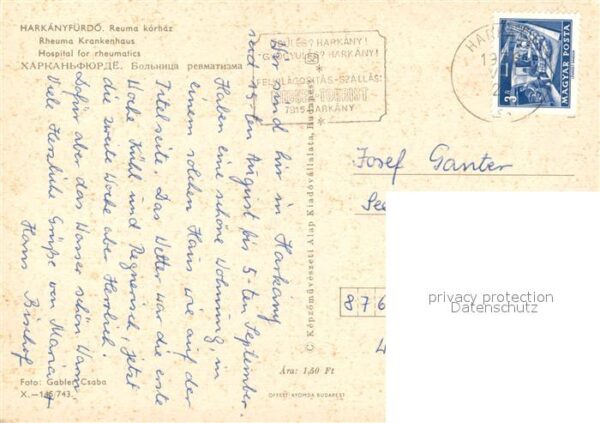 HARKÁNYFÜRDŐ. Reuma kórház
Rheuma Krankenhaus
Hospital for rheumatics
ХАРКАНЬФЮРДЁ. Больница ревматизма
Wir sind hir in Harkány
seit 15-ten August bis 5-ten September.
Haben eine schöne Wohnung, in
einem solchen Haus wie auf der
Titelseite. Das Wetter war die erste
Woche Kühl und Regnerisch, jetzt
die zweite Woche aber Herrlich!
Dafür aber das Wasser schön Warm
Viele Herzliche Grüße von Maria u
Hans Bischof
Foto: Gabler Csaba
X.—145/743.
© Képzőművészeti Alap Kiadóvállalata, Budapest
ÜDÜLÉS? HARKÁNY!
GYÓGYULÉS? HARKÁNY!
FELVILÁGOSÍTÁS-SZÁLLÁS:
TOURIST
7815 HARKÁNY
HAR
3 Ft
MAGYAR POSTA
Josef Ganter
See
876
Ára: 1,50 Ft
OFFSET NYOMDA BUDAPEST
privacy protection
Datenschutz